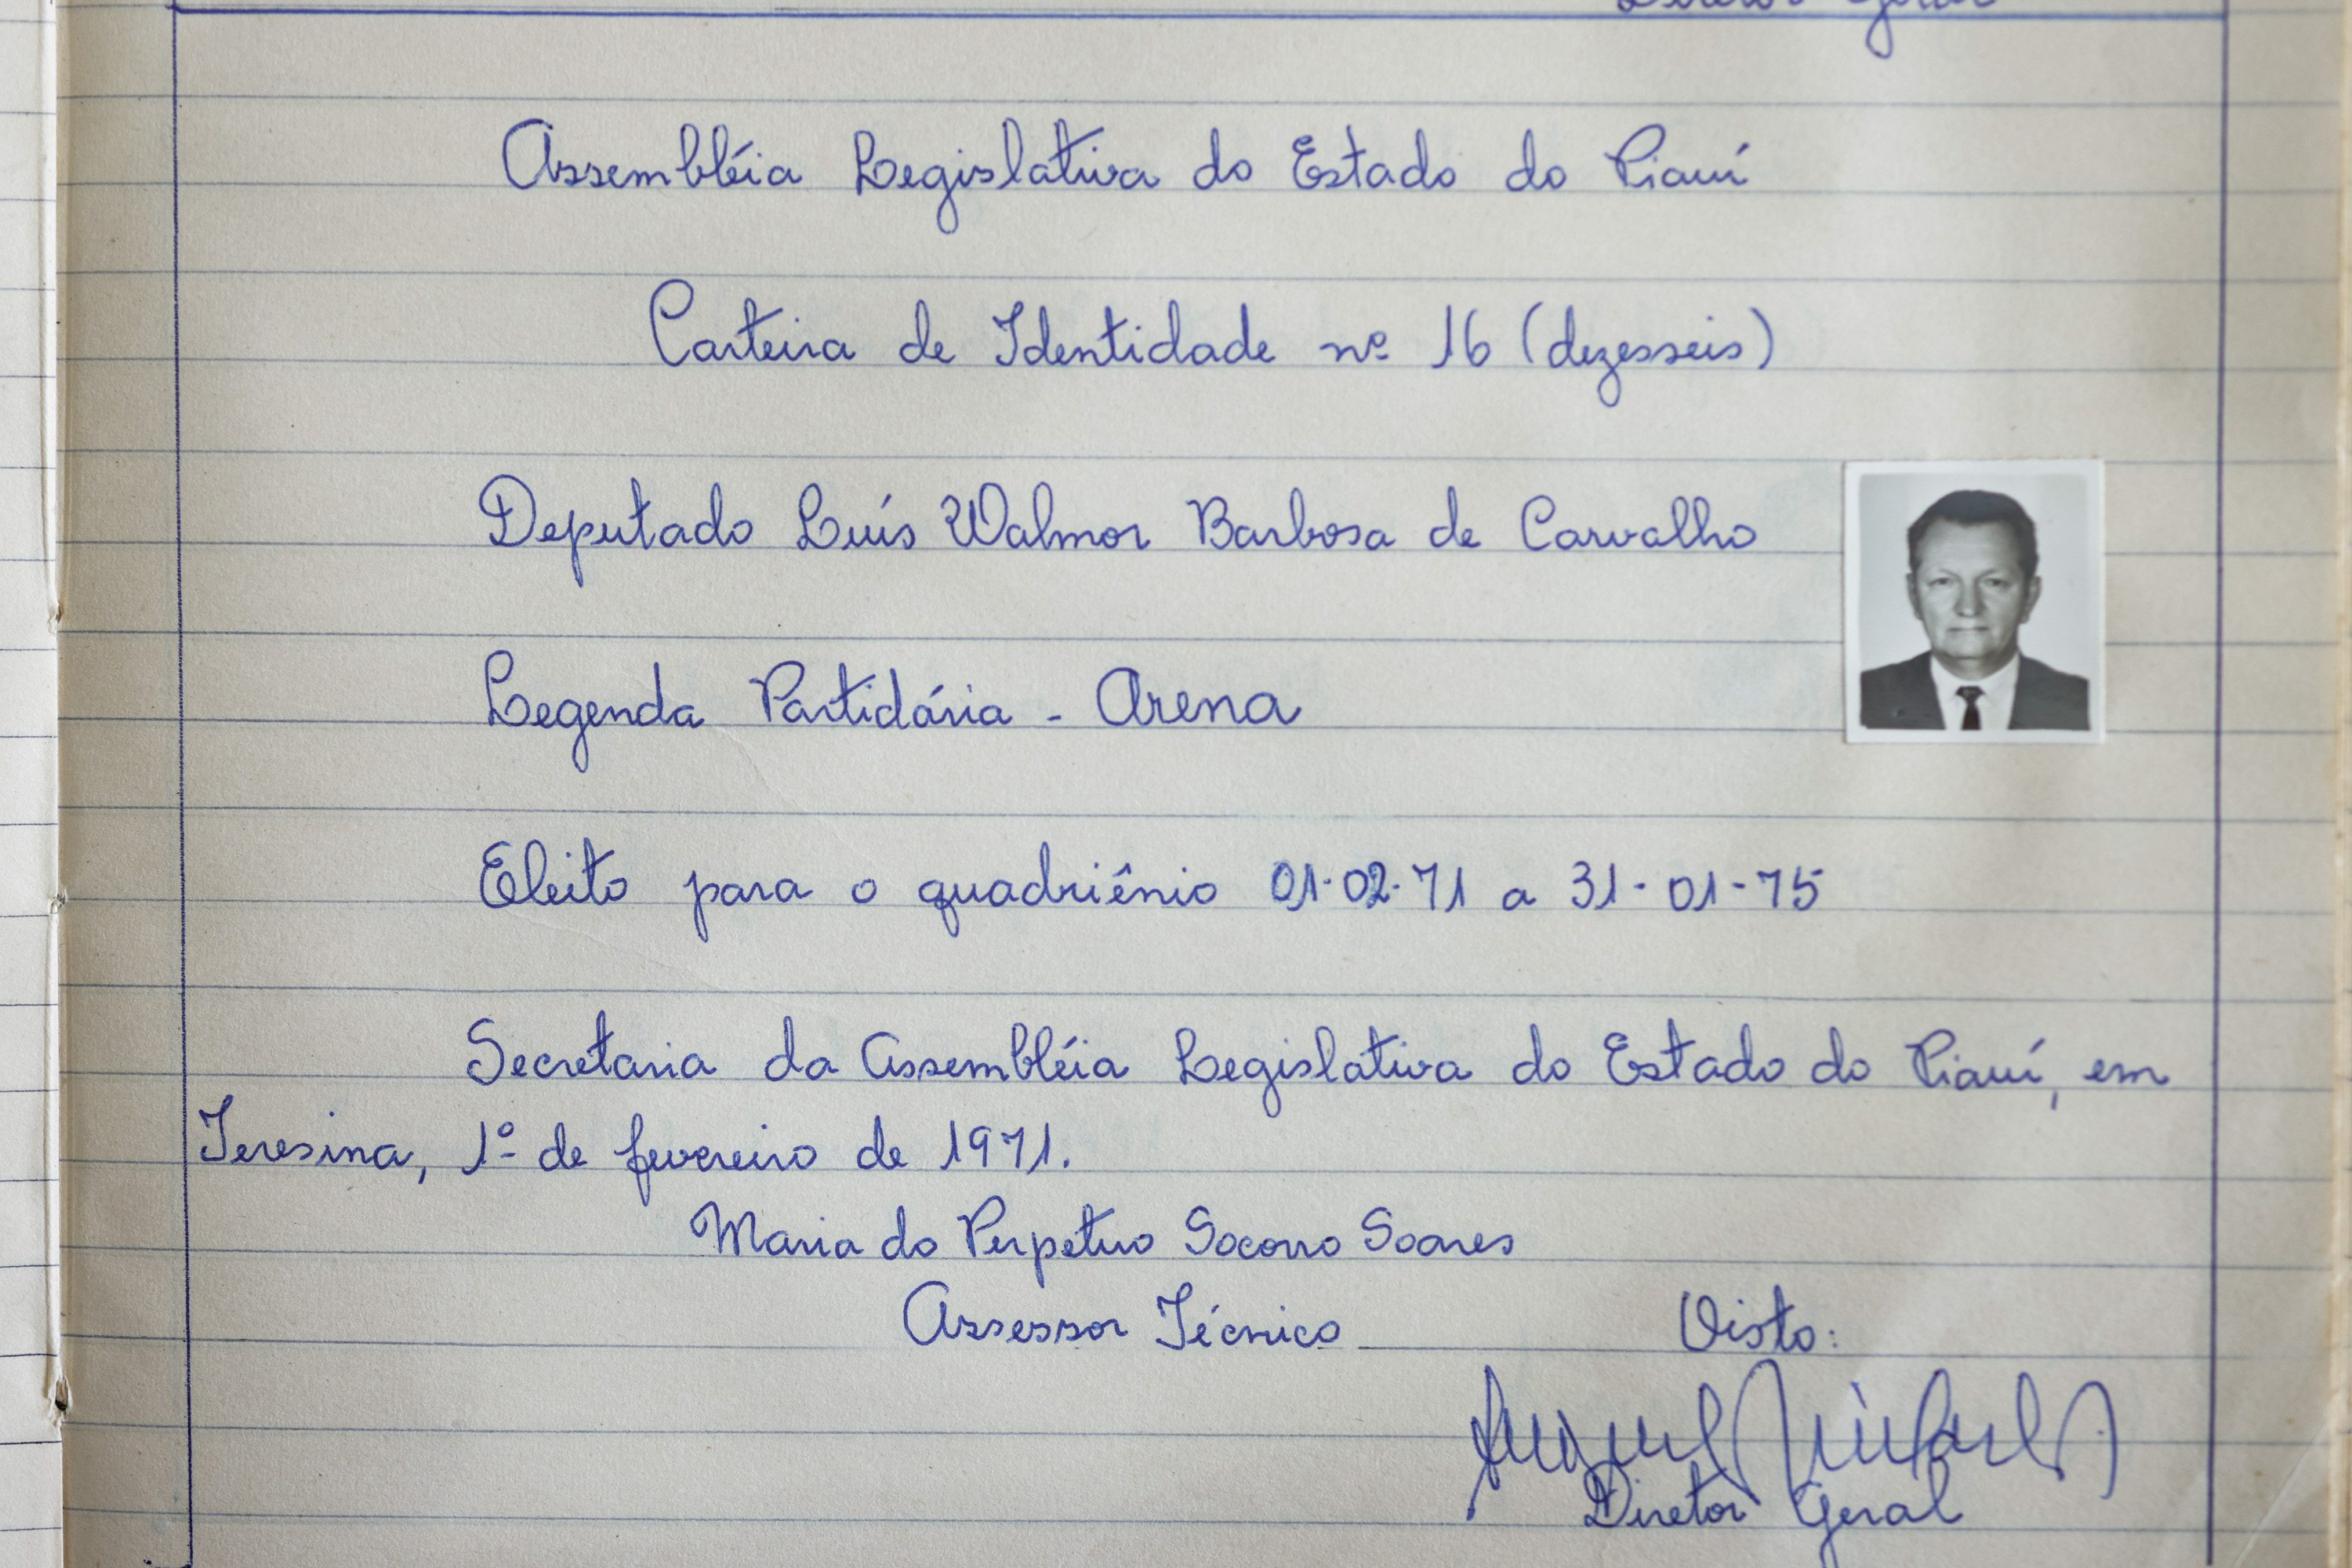 Diretor Geral
Assembléia Legislativa do Estado do Piauí
Carteira de Identidade nº 16 (dezesseis)
Deputado Luís Walmor Barbosa de Carvalho
Legenda Partidária - Arena
Eleito para o quadriênio 01-02-71 a 31-01-75
Secretaria da Assembléia Legislativa do Estado do Piauí, em
Teresina, 1º de fevereiro de 1971.
Maria do Perpetuo Socorro Soares
Assessor Técnico
Visto:
Diretor Geral